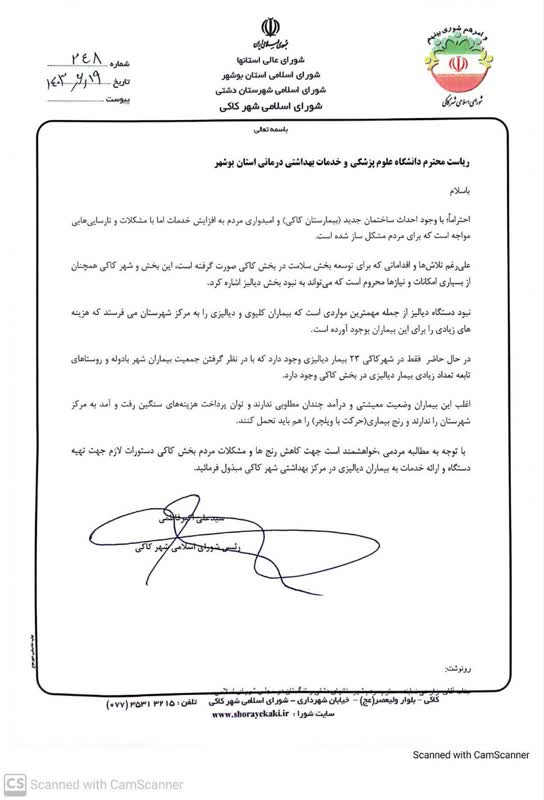 و امرهم شوری بینهم
شورای اسلامی شهر کاکی
جمهوری اسلامی ایران
شورای عالی استانها
شورای اسلامی استان بوشهر
شورای اسلامی شهرستان دشتی
شورای اسلامی شهر کاکی
شماره ۲۴۸
تاریخ ۱۴۰۳/۶/۱۹
پیوست
باسمه تعالی
ریاست محترم دانشگاه علوم پزشکی و خدمات بهداشتی درمانی استان بوشهر
باسلام
احتراماً؛ با وجود احداث ساختمان جدید (بیمارستان کاکی) و امیدواری مردم به افزایش خدمات اما با مشکلات و نارسایی‌هایی
مواجه است که برای مردم مشکل ساز شده است.
علی‌رغم تلاش‌ها و اقداماتی که برای توسعه بخش سلامت در بخش کاکی صورت گرفته است، این بخش و شهر کاکی همچنان
از بسیاری امکانات و نیازها محروم است که می‌تواند به نبود بخش دیالیز اشاره کرد.
نبود دستگاه دیالیز از جمله مهمترین مواردی است که بیماران کلیوی و دیالیزی را به مرکز شهرستان می فرستد که هزینه
های زیادی را برای این بیماران بوجود آورده است.
در حال حاضر فقط در شهرکاکی ۲۳ بیمار دیالیزی وجود دارد که با در نظر گرفتن جمعیت بیماران شهر بادوله و روستاهای
تابعه تعداد زیادی بیمار دیالیزی در بخش کاکی وجود دارد.
اغلب این بیماران وضعیت معیشتی و درآمد چندان مطلوبی ندارند و توان پرداخت هزینه‌های سنگین رفت و آمد به مرکز
شهرستان را ندارند و رنج بیماری(حرکت با ویلچر) را هم باید تحمل کنند.
با توجه به مطالبه مردمی ،خواهشمند است جهت کاهش رنج ها و مشکلات مردم بخش کاکی دستورات لازم جهت تهیه
دستگاه و ارائه خدمات به بیماران دیالیزی در مرکز بهداشتی شهر کاکی مبذول فرمائید.
سیدعلی اکبر
رئیس شورای اسلامی شهر کاکی
رونوشت:
کاکی - بلوار ولیعصر(عج) - خیابان شهرداری - شورای اسلامی شهر کاکی تلفن : ۳۲۱۵ ۳۵۳۱ (۰۷۷)
سایت شورا : www.shorayekaki.ir
Scanned with CamScanner
CS Scanned with CamScanner